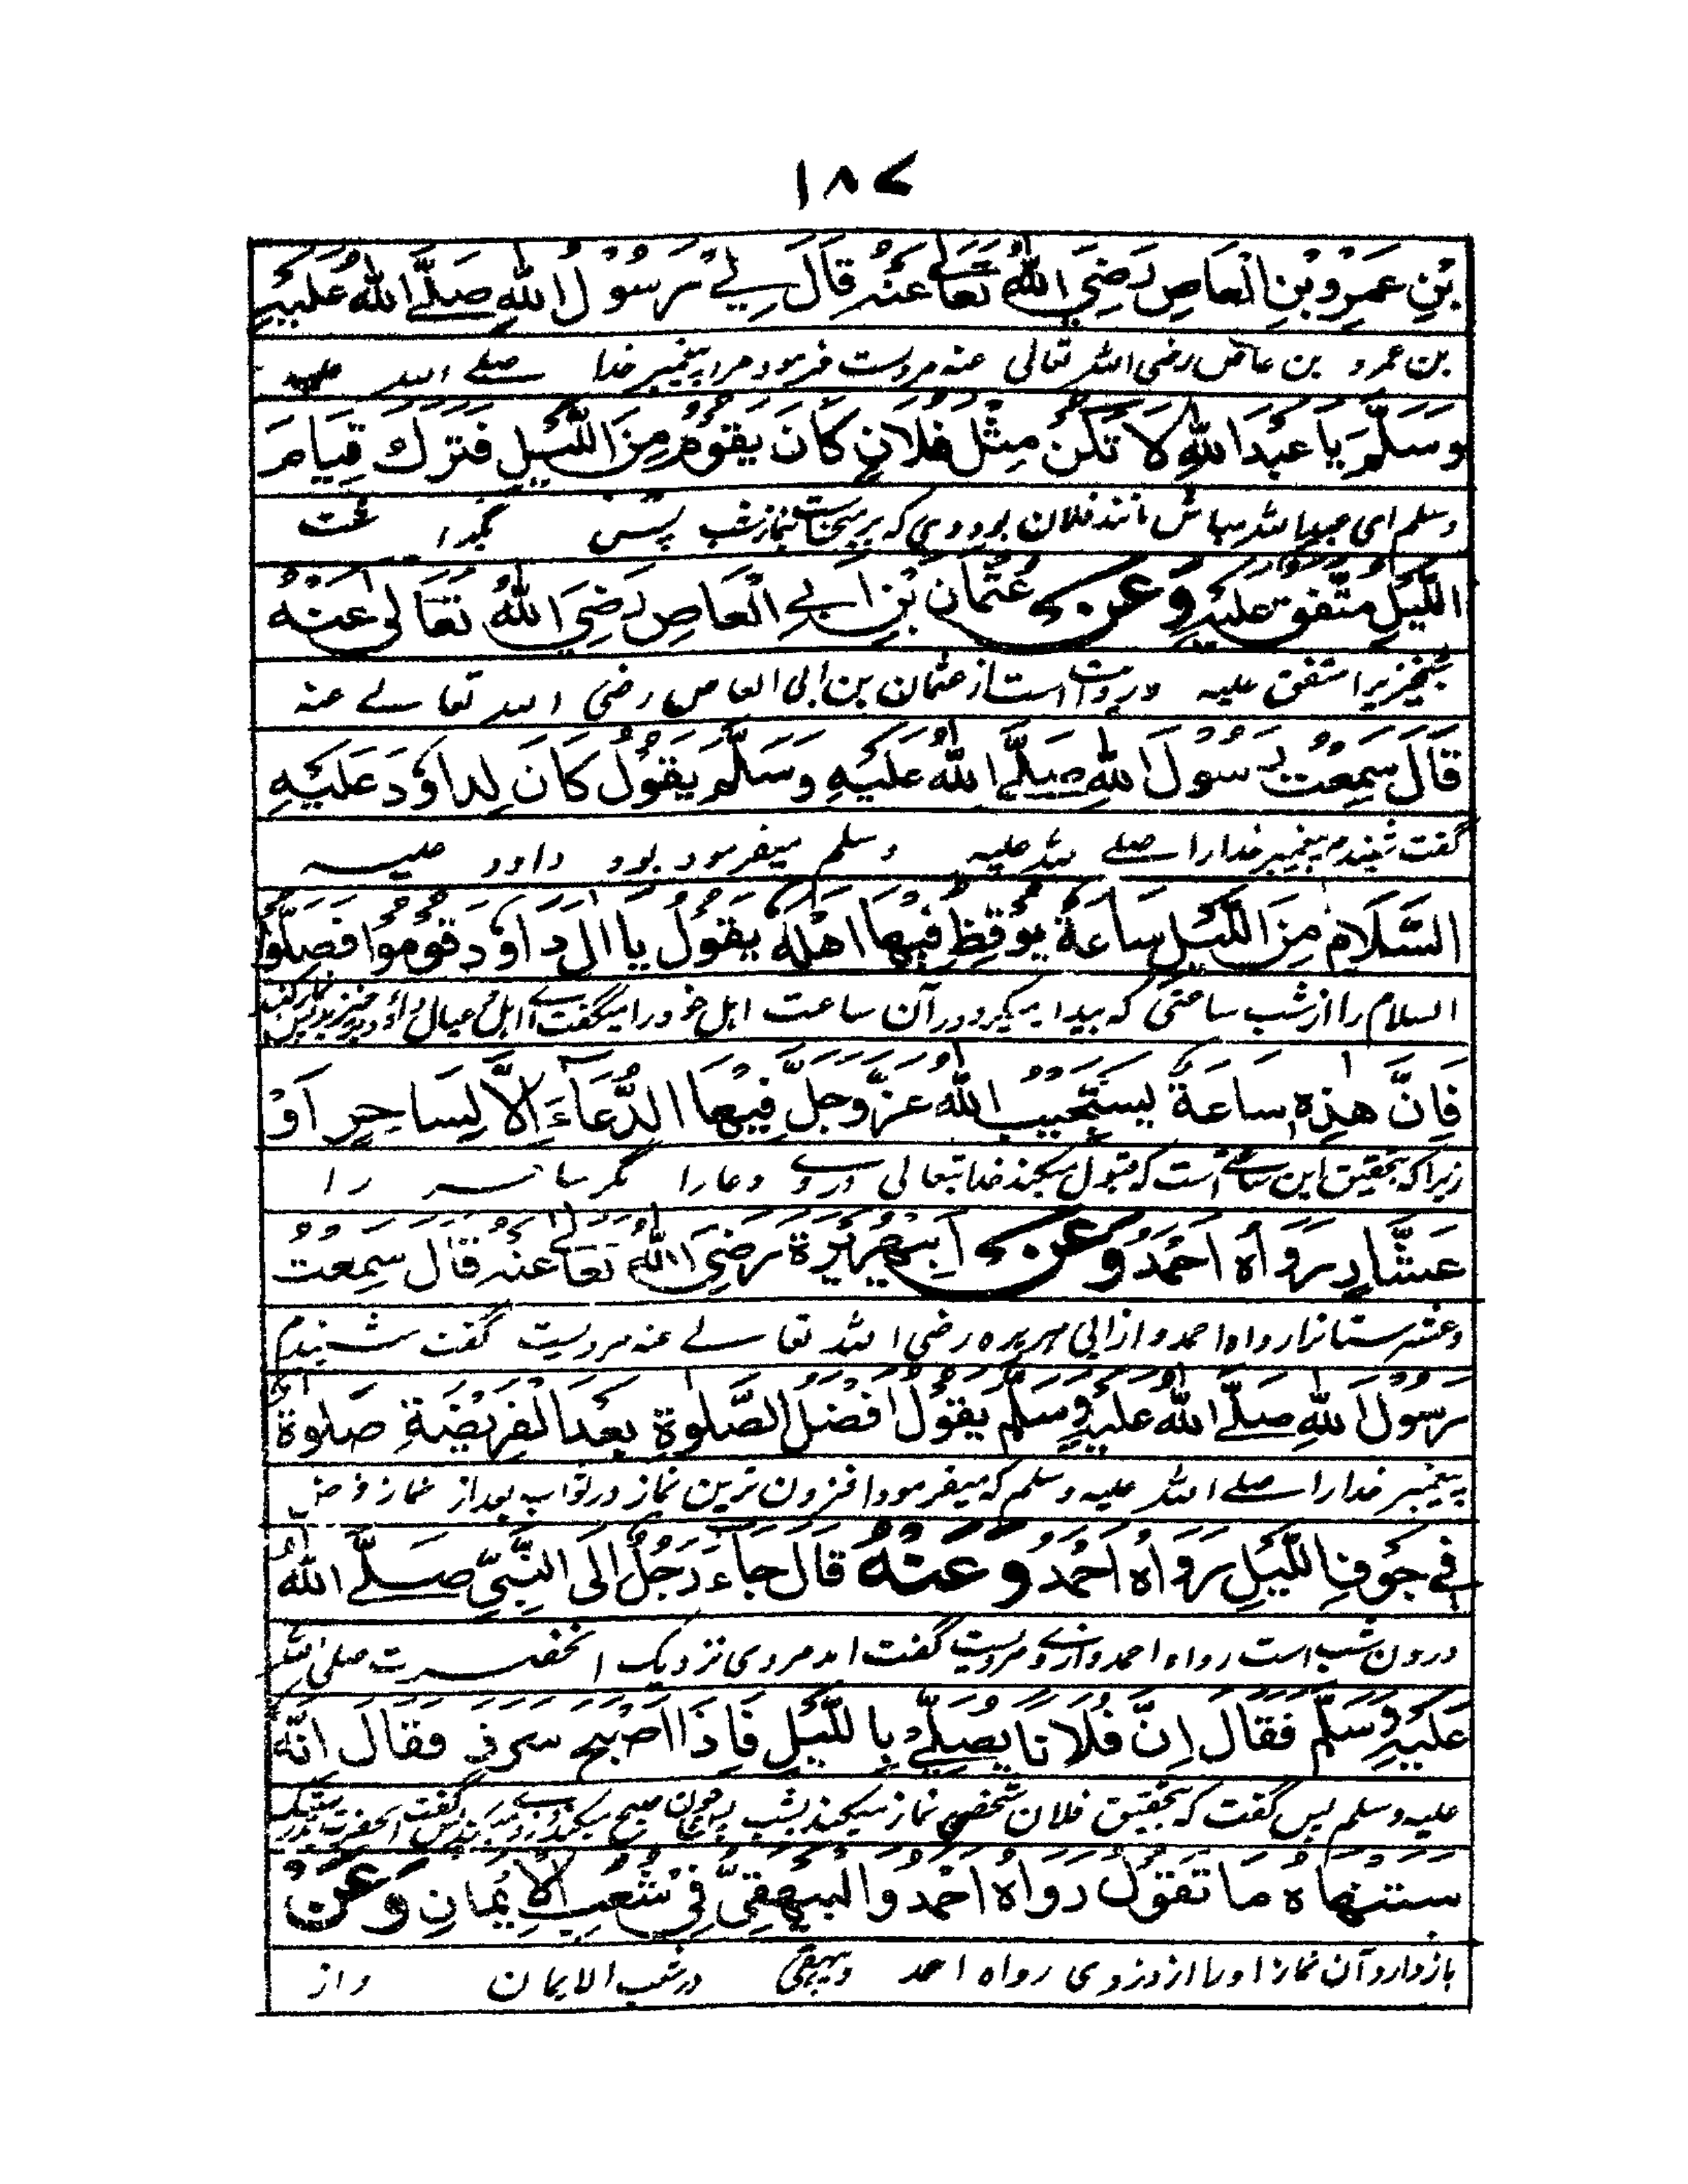 ١٨٧
بْنِ عَمْرِو بْنِ الْعَاصِ رَضِيَ اللّٰهُ تَعَالٰى عَنْهُ قَالَ لِيْ رَسُوْلُ اللّٰهِ صَلَّے اللّٰهُ عَلَيْهِ
بن عمرو بن عاص رضی اللہ تعالی عنہ مرویست فرمود مرا پیغمبر خدا صلے اللہ علیہ
وَسَلَّمَ يَا عَبْدَ اللّٰهِ لَا تَكُنْ مِثْلَ فُلَانٍ كَانَ يَقُوْمُ مِنَ اللَّيْلِ فَتَرَكَ قِيَامَ
وسلم ای عبداللہ مباش مانند فلان بود وی که برمیخاست بنماز شب پس بگذاشت
اللَّيْلِ مُتَّفَقٌ عَلَيْهِ وَعَنْ عُثْمَانَ بْنِ اَبِي الْعَاصِ رَضِيَ اللّٰهُ تَعَالٰى عَنْهُ
شبخیزیرا متفق علیہ و روایت است از عثمان بن ابی العاص رضی اللہ تعالے عنہ
قَالَ سَمِعْتُ رَسُوْلَ اللّٰهِ صَلَّے اللّٰهُ عَلَيْهِ وَسَلَّمَ يَقُوْلُ كَانَ لِدَاوٗدَ عَلَيْهِ
گفت شنیدم پیغمبر خدا را صلے اللہ علیہ وسلم میفرمود بود داود علیہ
السَّلَامُ مِنَ اللَّيْلِ سَاعَةٌ يُوْقِظُ فِيْهَا اَهْلَهٗ يَقُوْلُ يَا اٰلَ دَاوٗدَ قُوْمُوْا فَصَلُّوْا
السلام را از شب ساعتی که بیدار میکرد در آن ساعت اهل خود را میگفت اے اهل و عیال داؤد
فَاِنَّ هٰذِهٖ سَاعَةٌ يَسْتَجِيْبُ اللّٰهُ عَزَّ وَجَلَّ فِيْهَا الدُّعَآءَ اِلَّا لِسَاحِرٍ اَوْ
زیرا که بتحقیق این ساعتے است که قبول میکند خدا تعالی در وے دعا را مگر ساحر را
عَشَّارٍ رَوَاهُ اَحْمَدُ وَعَنْ اَبِيْ هُرَيْرَةَ رَضِيَ اللّٰهُ تَعَالٰى عَنْهُ قَالَ سَمِعْتُ
و عشر ستانرا رواه احمد و از ابی هریره رضی اللہ تعالے عنہ مرویست گفت شنیدم
رَسُوْلَ اللّٰهِ صَلَّے اللّٰهُ عَلَيْهِ وَسَلَّمَ يَقُوْلُ اَفْضَلُ الصَّلٰوةِ بَعْدَ الْفَرِيْضَةِ صَلٰوةٌ
پیغمبر خدا را صلے اللہ علیہ وسلم که میفرمود افزون ترین نماز در ثواب بعد از نماز فرض
فِيْ جَوْفِ اللَّيْلِ رَوَاهُ اَحْمَدُ وَعَنْهُ قَالَ جَآءَ رَجُلٌ اِلَى النَّبِيِّ صَلَّے اللّٰهُ
درون شب است رواه احمد و از وے مرویست گفت آمد مردی نزدیک آنحضرت صلی اللہ
عَلَيْهِ وَسَلَّمَ فَقَالَ اِنَّ فُلَانًا يُصَلِّيْ بِاللَّيْلِ فَاِذَا اَصْبَحَ سَرَقَ فَقَالَ اِنَّهٗ
علیہ وسلم پس گفت که بتحقیق فلان شخصے نماز میکند بشب پس چون صبح میکند
سَتَنْهَاهُ مَا تَقُوْلُ رَوَاهُ اَحْمَدُ وَالْبَيْهَقِيُّ فِيْ شُعَبِ الْاِيْمَانِ وَعَنْ
باز دارد آن نماز او را از دزدی رواه احمد و بیهقی در شعب الایمان و از